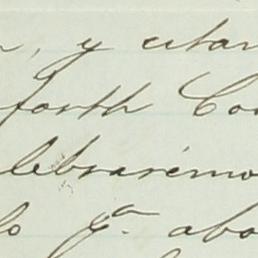 , y estan
forth Co
lebraremo
lo ga. abo